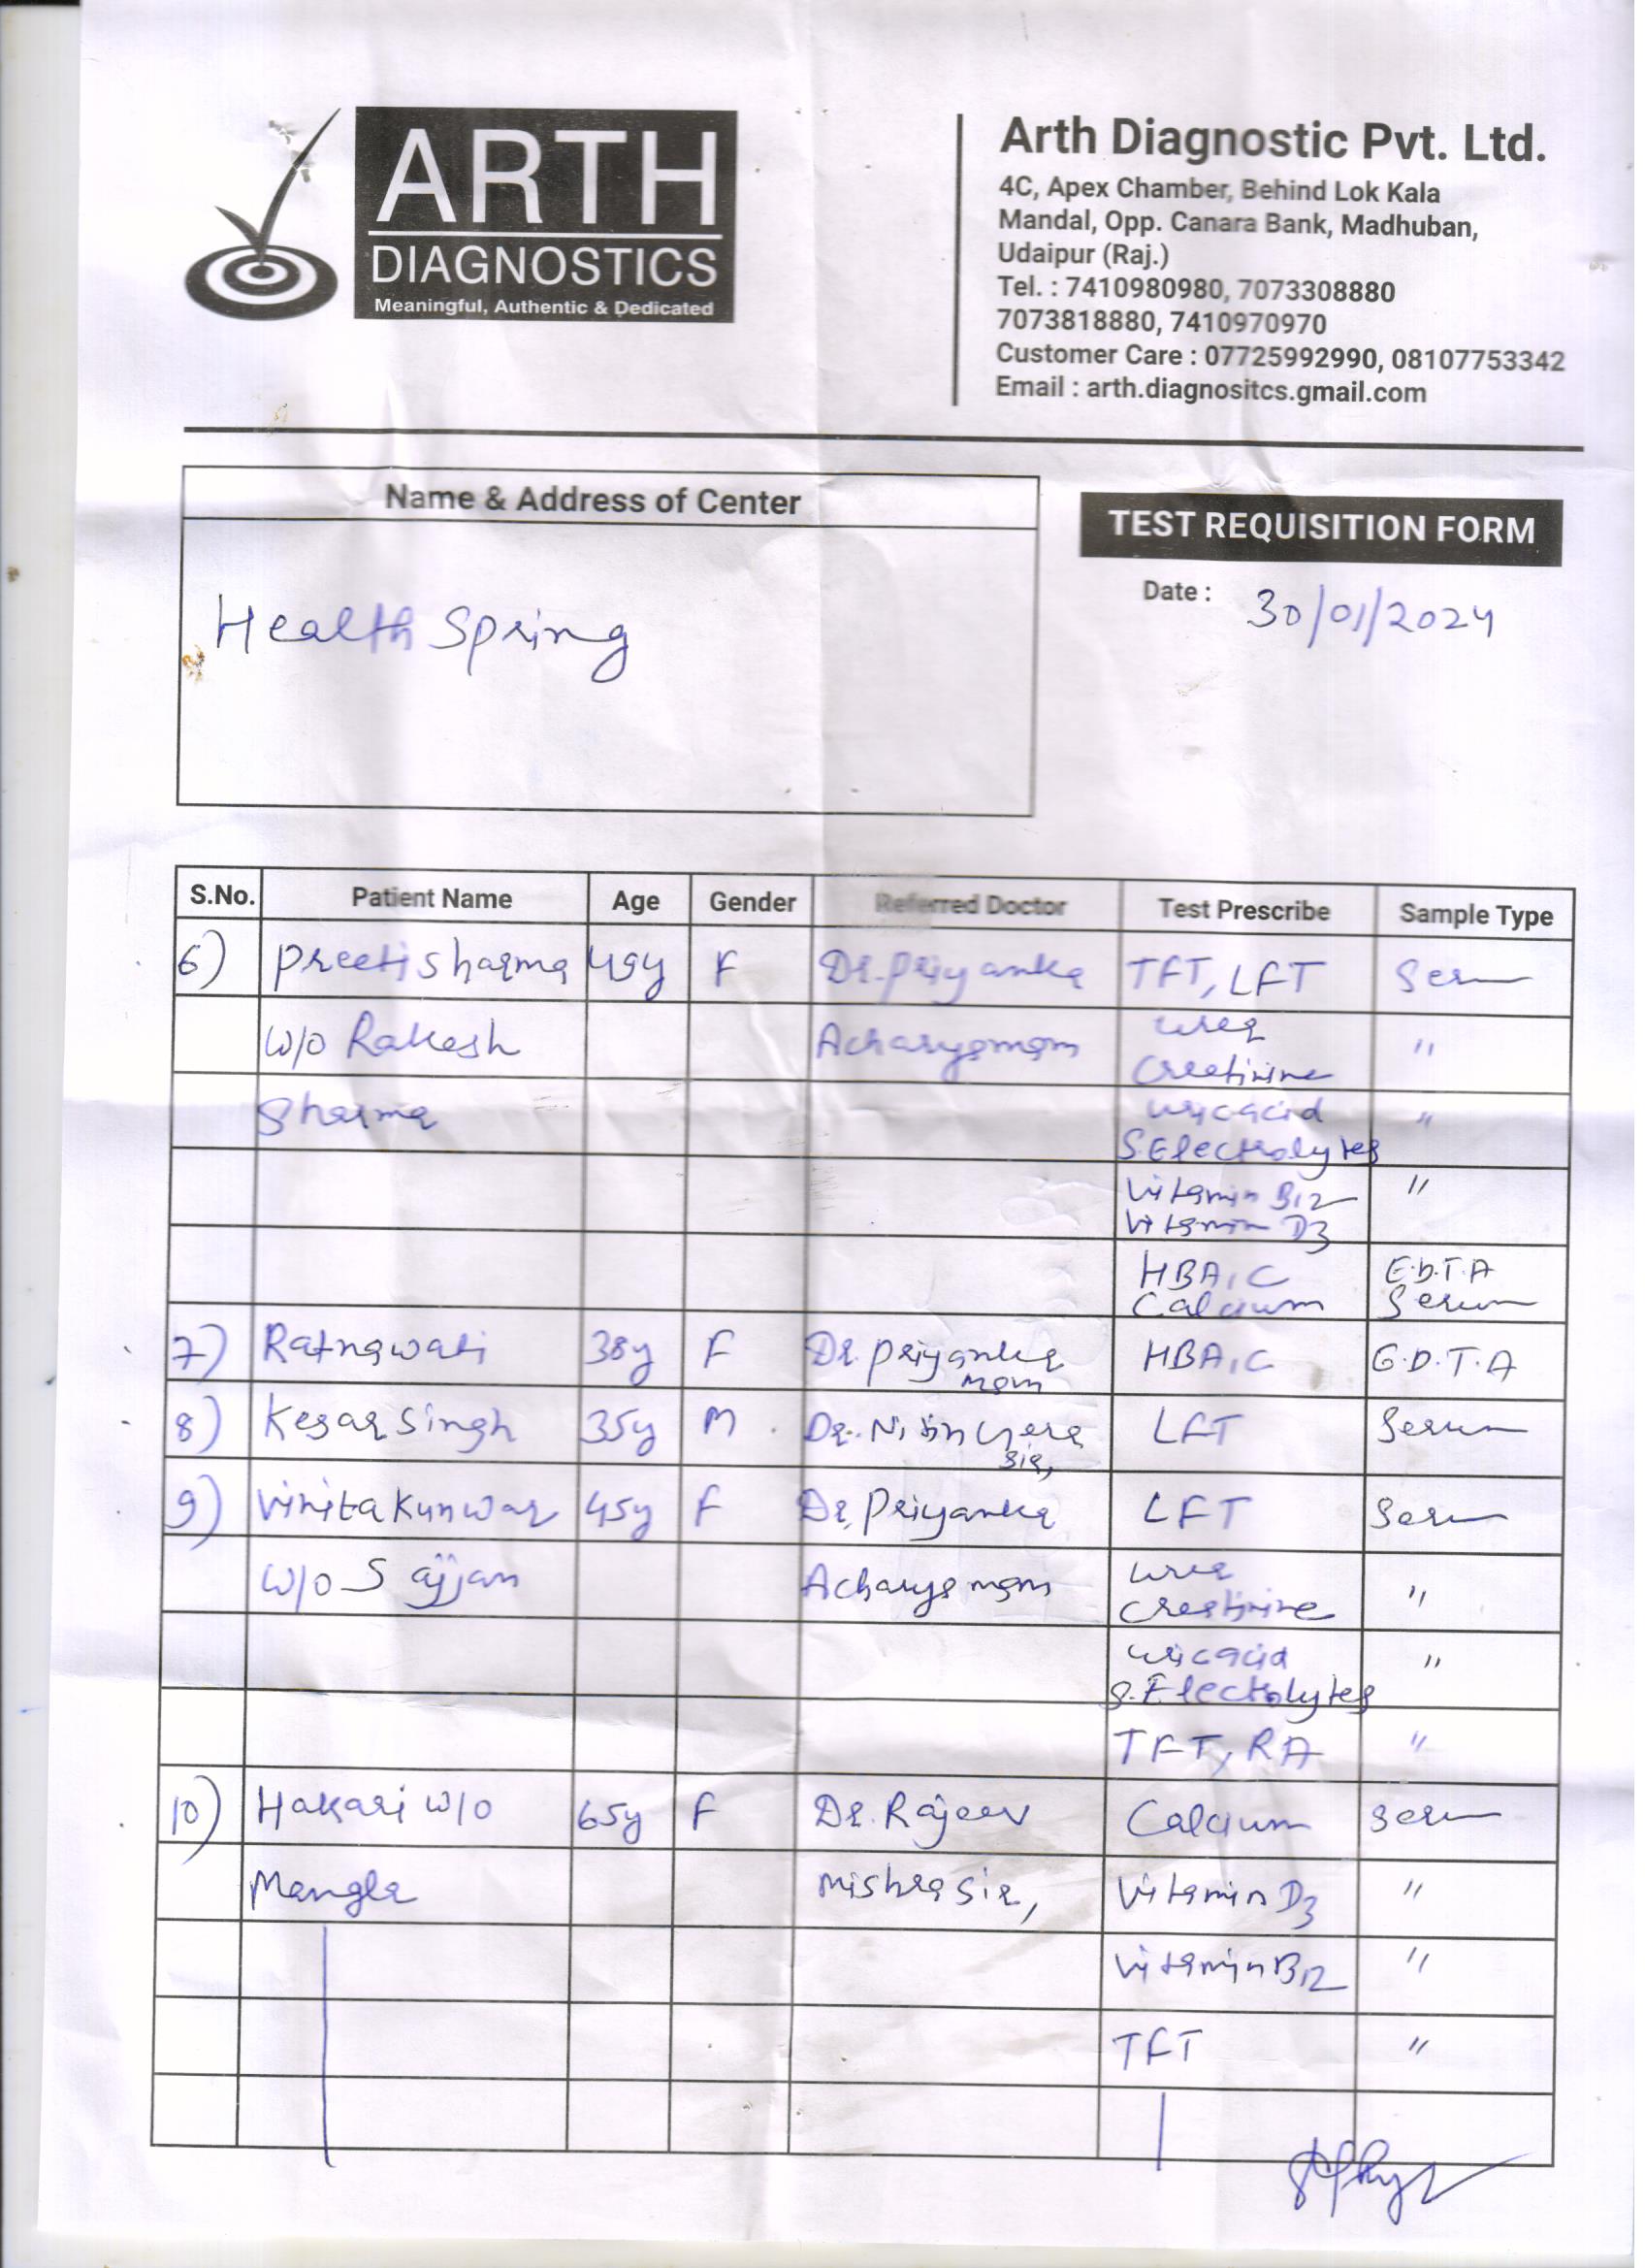 ARTH
DIAGNOSTICS
Meaningful, Authentic & Dedicated
Arth Diagnostic Pvt. Ltd.
4C, Apex Chamber, Behind Lok Kala
Mandal, Opp. Canara Bank, Madhuban,
Udaipur (Raj.)
Tel. : 7410980980, 7073308880
7073818880, 7410970970
Customer Care : 07725992990, 08107753342
Email : arth.diagnositcs.gmail.com
Name & Address of Center
Health Spring
TEST REQUISITION FORM
Date : 30/01/2024
S.No. Patient Name Age Gender Referred Doctor Test Prescribe Sample Type
6) Preeti Sharma 49y F Dr. Priyanka TFT, LFT Serum
W/o Rakesh Acharya mam urea "
Creatinine
Sharma uric acid "
S. Electrolytes
Vitamin B12 "
Vitamin D3
HBA1C E.D.T.A
Calcium Serum
7) Ratnawati 38y F Dr. Priyanka HBA1C E.D.T.A
mam
8) Kesar Singh 35y M Dr. Nitin LFT Serum
sir,
9) Vinita Kunwar 45y F Dr. Priyanka LFT Serum
W/o Sajjan Acharya mam urea "
Creatinine
uric acid "
S. Electrolytes
TFT, RA "
10) Hakari W/O 65y F Dr. Rajeev Calcium Serum
Mangla Mishra Sir, Vitamin D3 "
Vitamin B12 "
TFT "